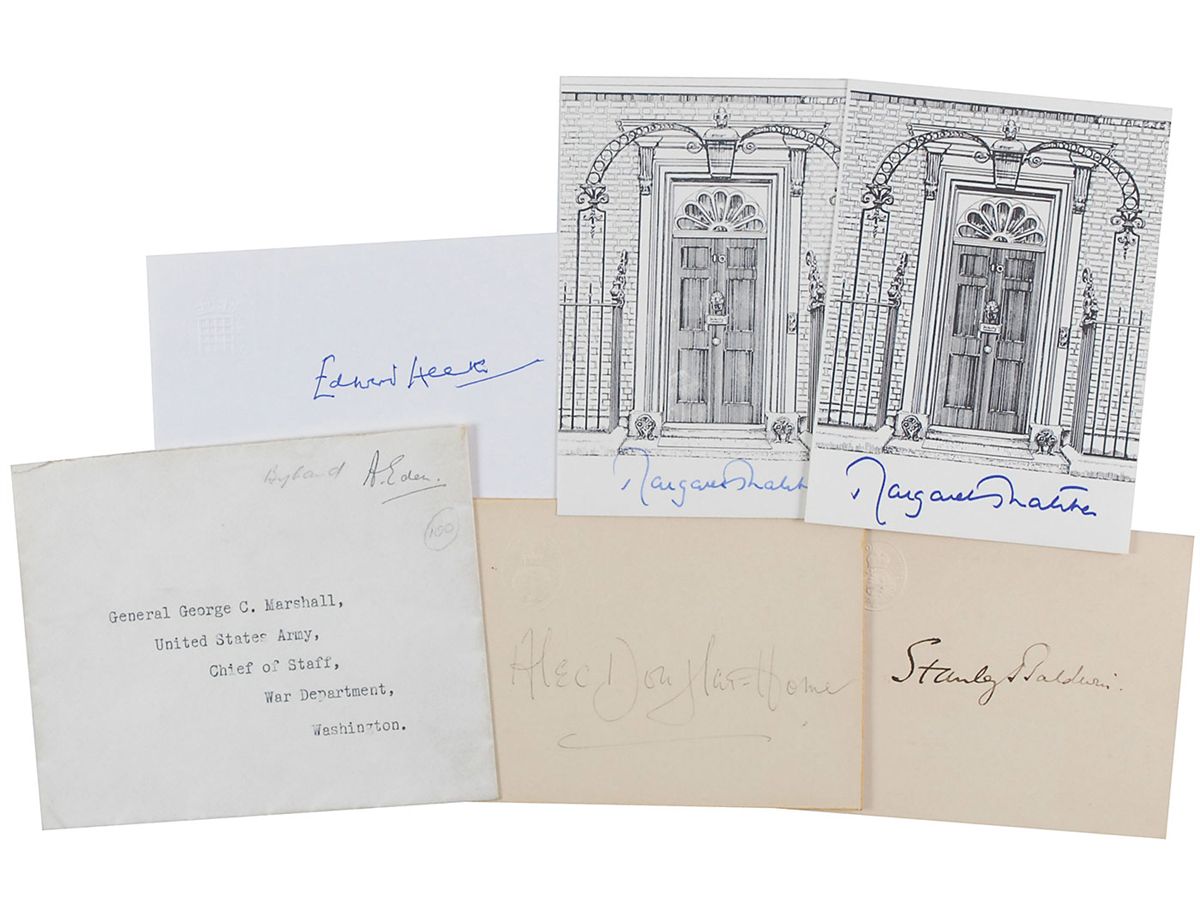 Edward Heath
Margaret Thatcher
Margaret Thatcher
A. Eden.
100
General George C. Marshall,
United States Army,
Chief of Staff,
War Department,
Washington.
Alec Douglas-Home
Stanley Baldwin.